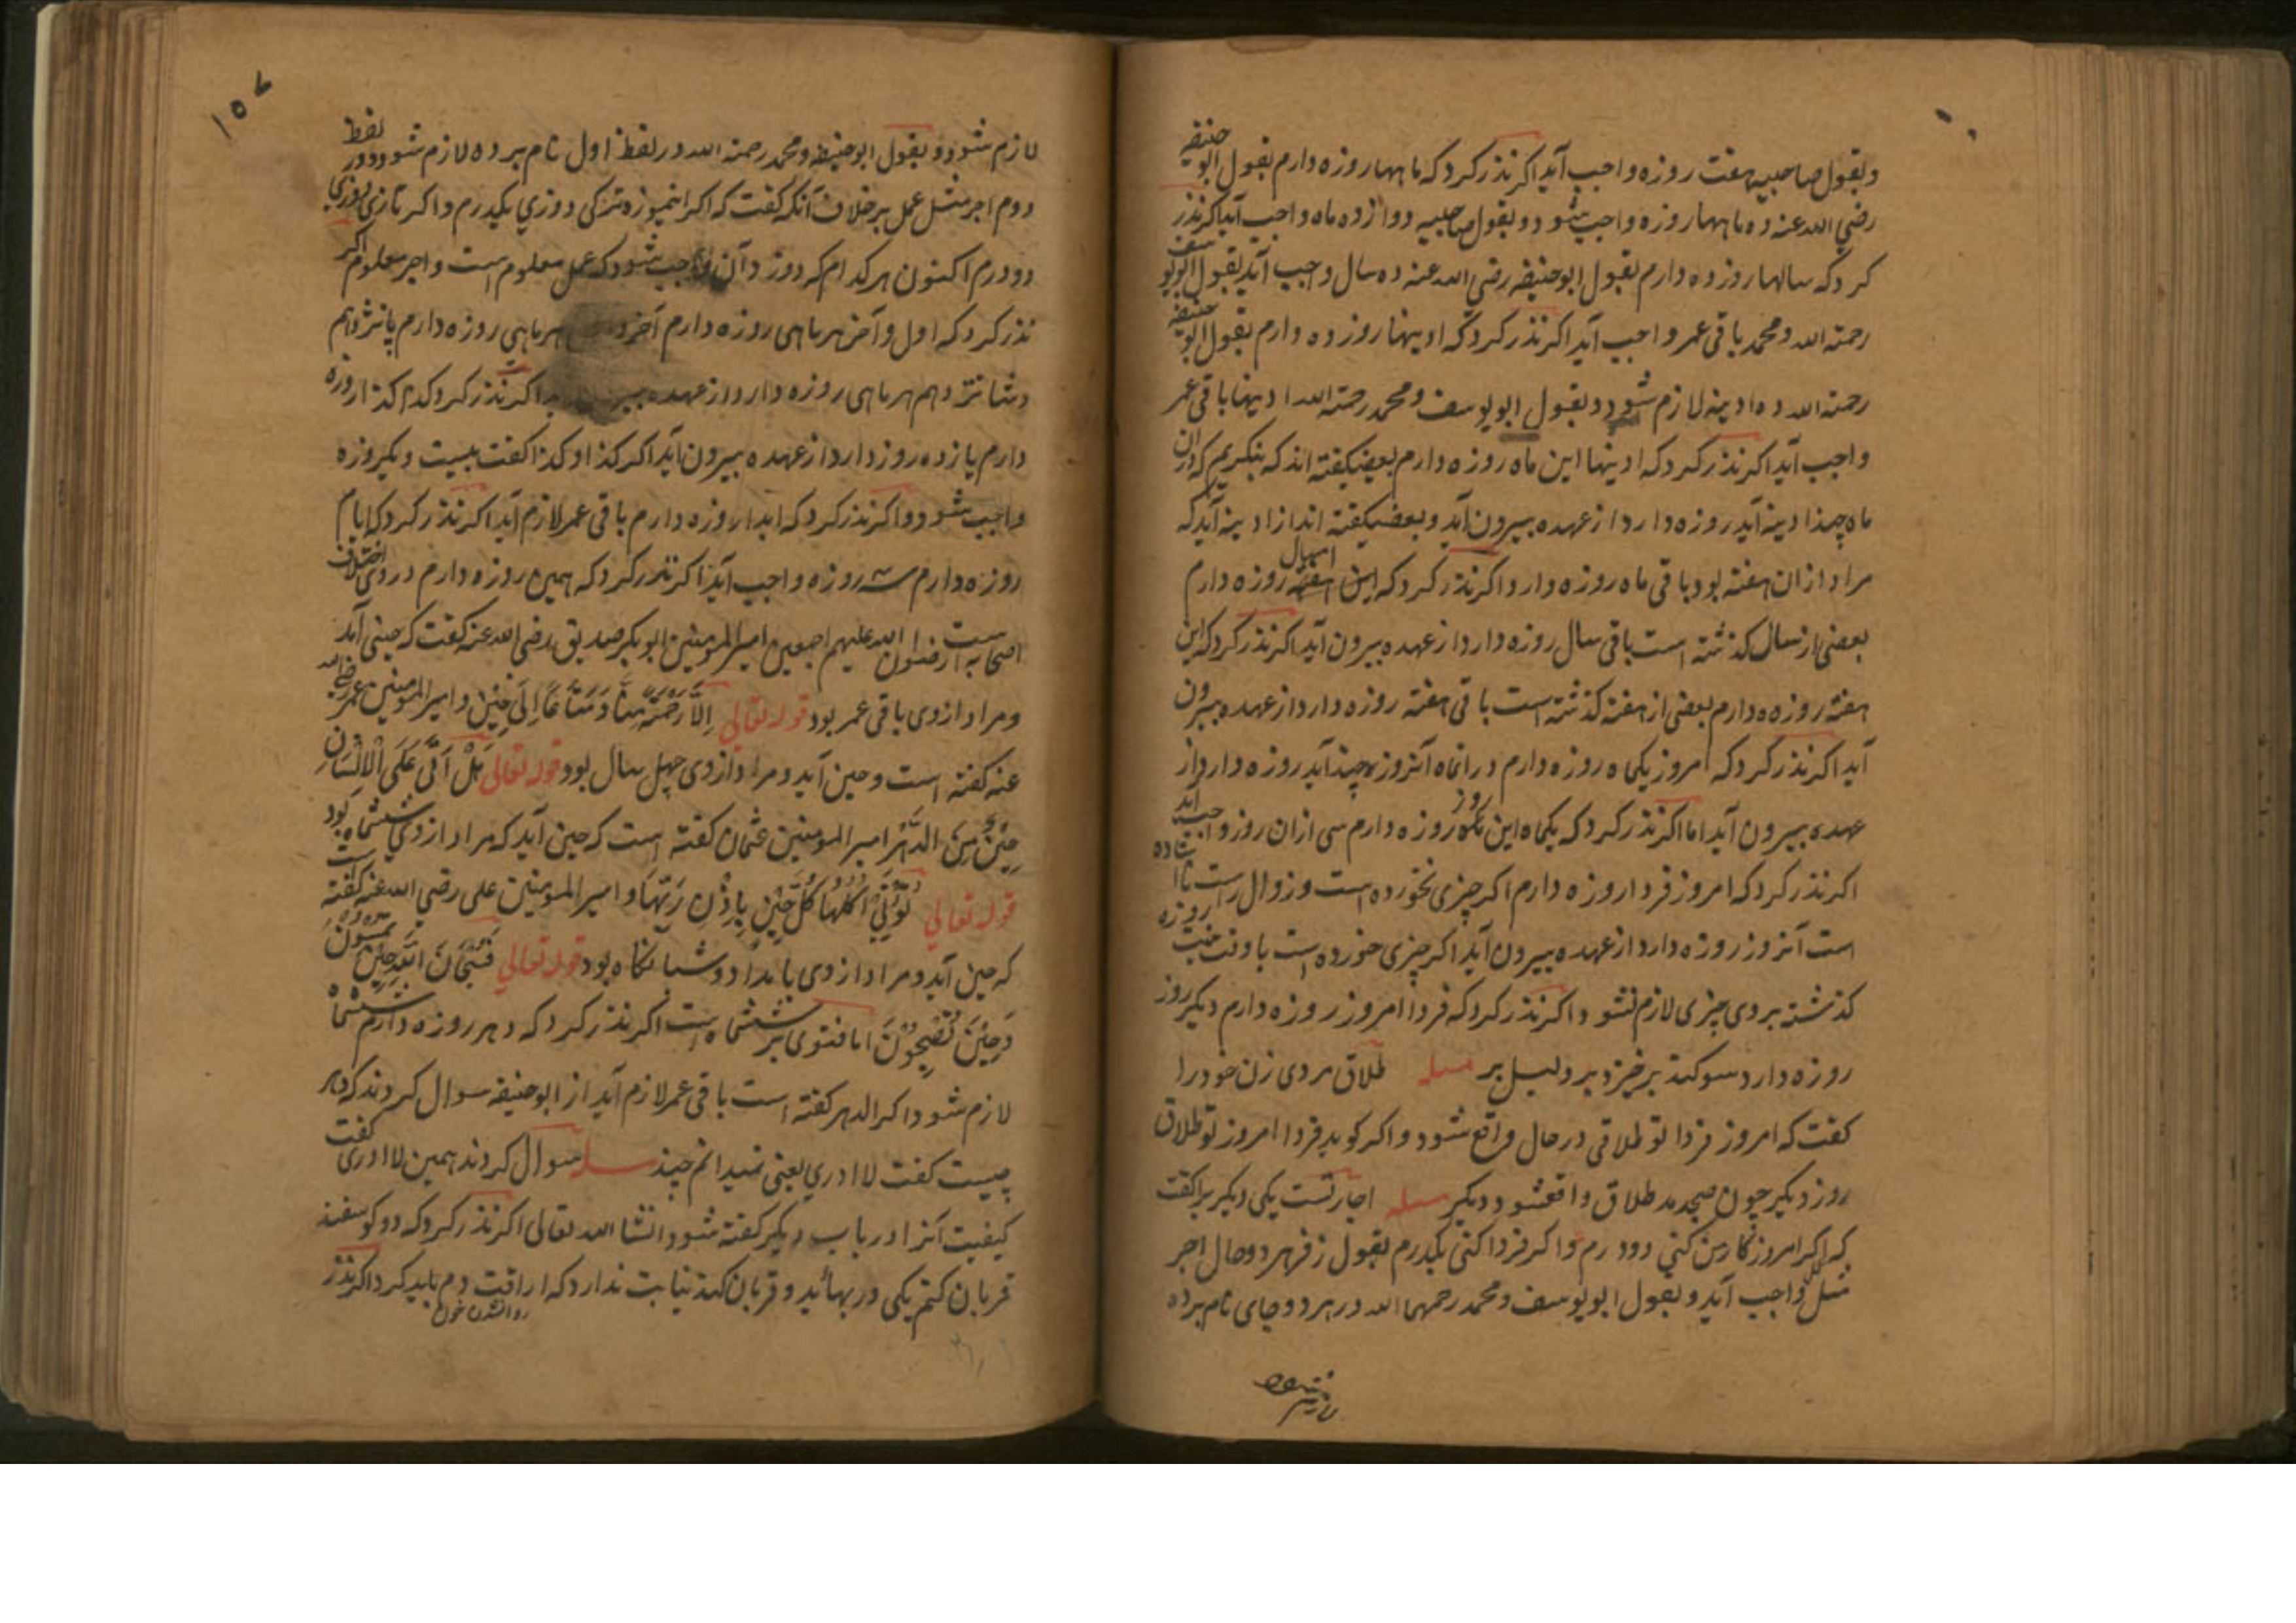 وبقول صاحبیه هفت روزه واجب آید اکر نذر کرد که ماهها روزه دارم بقول ابو حنیفه
رضی الله عنه ده ماهها روزه واجب شود و بقول صاحبیه دوازده ماه واجب آید اکر نذر
کرد که سالها روزه دارم بقول ابوحنیفه رضی الله عنه ده سال واجب آید بقول ابویوسف
رحمته الله و محمد باقی عمر واجب آید اکر نذر کرد که ادینها روزه دارم بقول ابو حنیفه
رحمته الله ده ادینه لازم شود و بقول ابویوسف و محمد رحمته الله ادینها باقی عمر
واجب آید اکر نذر کرد که ادینها این ماه روزه دارم بعضی کفته اند که بنکریم که دران
ماه چند ادینه آید روزه دارد از عهده بیرون آید و بعضی کفته اند از ادینه آید که
مراد ازان هفته بود باقی ماه روزه دارد اکر نذر کرد که این امسال روزه دارم
بعضی از سال کذشته است باقی سال روزه دارد از عهده بیرون آید اکر نذر کرد که این
هفته روزه دارم بعضی از هفته کذشته است باقی هفته روزه دارد از عهده بیرون
آید اکر نذر کرد که امروز یکماه روزه دارم درانماه آنروز چند آید روزه دارد از
عهده بیرون آید اما اکر نذر کرد که یکماه این روز روزه دارم سی ازان روز واجب آید
اکر نذر کرد که امروز فردا روزه دارم اکر چیزی نخورده است و زوال راست نا ستاده
است آنروز روزه دارد از عهده بیرون آید اکر چیزی خورده است یا وقت نیت روزه
کذشته بر وی چیزی لازم نشود اکر نذر کرد که فردا امروز روزه دارم دیکر روز
روزه دارد سوکند برخیزد بر دلیل بر مسله طلاق مردی زن خود را
کفت که امروز فردا تو طلاقی در حال واقع شود و اکر کوید فردا امروز تو طلاق
روز دیکر چون صبح دمد طلاق واقع شود دیکر مسله اجارتست یکی دیکر را کفت
که اکر امروز کار من کنی دو درم و اکر فردا کنی یکدرم بقول زفر هر دو حال اجر
مثل واجب آید و بقول ابویوسف و محمد رحمهما الله در هر دو جای نام برده
۱۵۲
لازم شود و بقول ابوحنیفه و محمد رحمته الله در لفظ اول نام برده لازم شود و در لفظ
دوم اجر مثل عمل بر خلاف آنکه کفت که اکر اینموزه ترکی دوزی یکدرم و اکر تازی دوزی
دو درم اکنون هر کدام که دوزد آن واجب شود که عمل معلوم است و اجر معلوم اکر
نذر کرد که اول و آخر هر ماهی روزه دارم آخر هر ماهی روزه دارم پانزدهم
و شانزدهم هر ماهی روزه دارد از عهده اکر نذر کرد کذا کذا روزه
دارم یازده روز دارد از عهده بیرون آید اکر کذا و کذا کفت بیست و یکروزه
واجب شود و اکر نذر کرد که ابدا روزه دارم باقی عمر لازم آید اکر نذر کرد که ایام
روزه دارم سه روزه واجب آید اکر نذر کرد که همین روزه دارم در وی اختلاف
اصحابه است رضوان الله علیهم اجمعین امیر المومنین ابوبکر صدیق رضی الله عنه کفت که حینی آید
و مراد از وی باقی عمر بود قوله تعالی اِلَّا رَحْمَةً مِنَّا وَ مَتَاعًا اِلَى حِیْنٍ و امیر المومنین عمر رضی الله
عنه کفته است و حین آید و مراد از وی چهل سال بود قوله تعالی هَلْ اَتَى عَلَى الْاِنْسَانِ
حِیْنٌ مِنَ الدَّهْرِ امیر المومنین عثمان کفته است که حین آید که مراد از وی ششماه بود
قوله تعالی تُؤْتِیْ اُکُلَهَا کُلَّ حِیْنٍ بِاِذْنِ رَبِّهَا و امیر المومنین علی رضی الله عنه کفته است
که حین آید و مراد از وی بامداد و شبانکاه بود قوله تعالی فَسُبْحَانَ اللَّهِ حِیْنَ تُمْسُوْنَ
وَ حِیْنَ تُصْبِحُوْنَ اما فتوی بر ششماه است اکر نذر کرد که دهر روزه دارم ششماه
لازم شود اکر الدهر کفته است باقی عمر لازم آید از ابوحنیفه سوال کردند که دهر
چیست کفت لا ادری یعنی نمیدانم چند مسله سوال کردند همین لا ادری کفت
کیفیت آنرا در باب دیکر کفته شود انشا الله تعالی اکر نذر کرد که دو کوسفند
قربان کنم یکی در بهائید و قربان کند نیابت ندارد که اراقت دم باید کرد اکر نذر
روانشدن خون